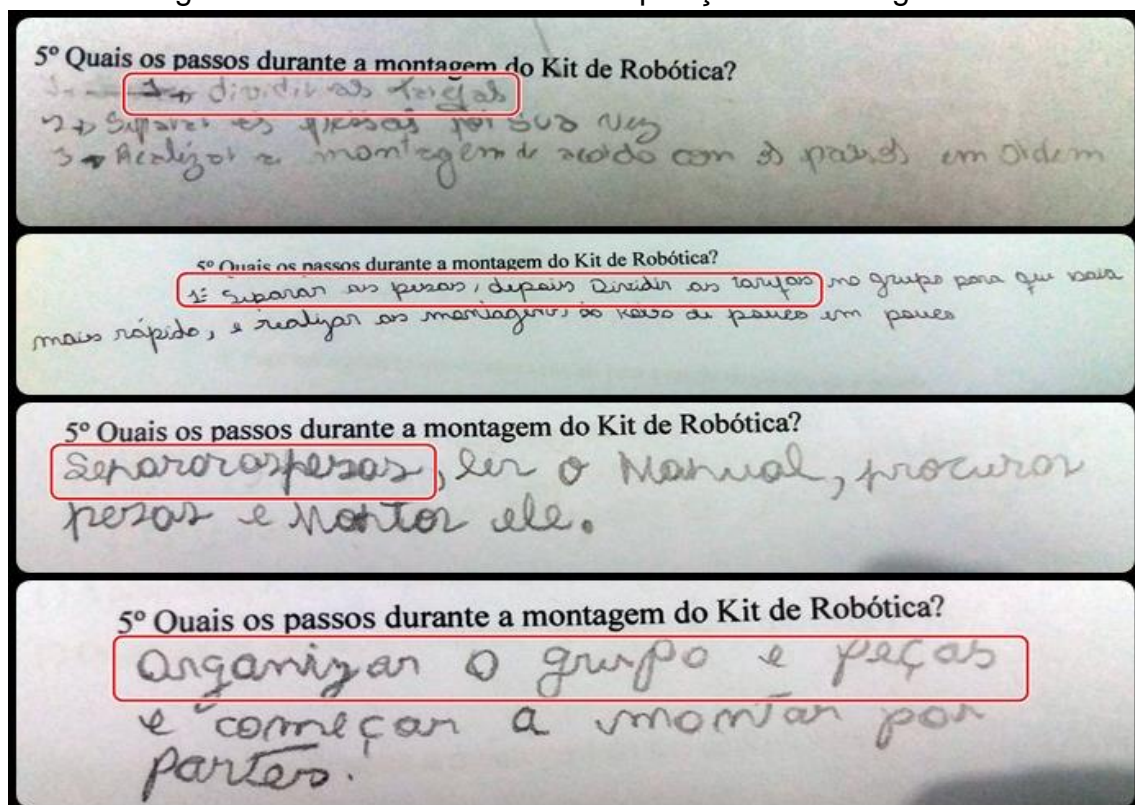 5º Quais os passos durante a montagem do Kit de Robótica?
1→ dividir as tarefas
2→ Separar as pesas por sua vez
3→ Realizar a montagem de acordo com os passos em ordem
5º Quais os passos durante a montagem do Kit de Robótica?
1º Separar as pesas, depois Dividir as tarefas no grupo para que
mais rápido, e realizar as montagens de pouco em pouco
5º Quais os passos durante a montagem do Kit de Robótica?
Separar as pesas, ler o Manual, procurar
pesas e Montar ele.
5º Quais os passos durante a montagem do Kit de Robótica?
Organizar o grupo e peças
e começar a montar por
partes.